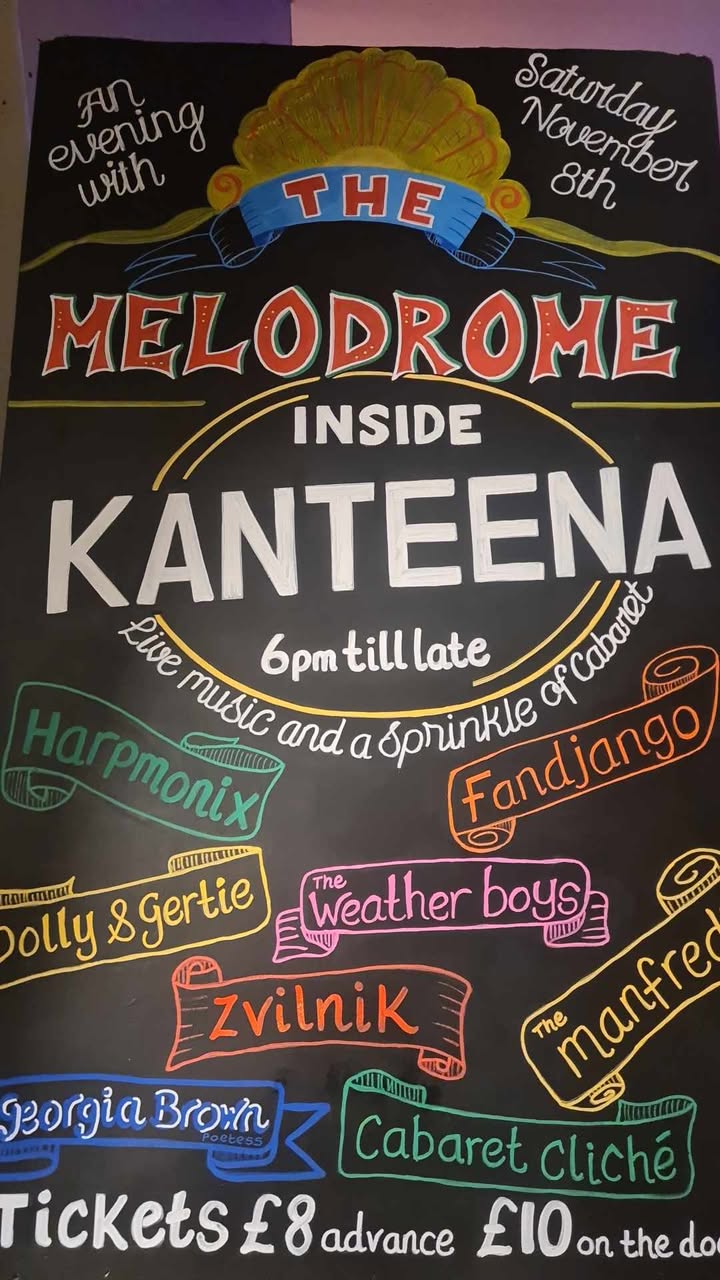 An
evening
with
Saturday
November
8th
THE
MELODROME
INSIDE
KANTEENA
6pm till late
Live music and a sprinkle of Cabaret
Harpmonix
Fandjango
Dolly & Gertie
The Weather boys
Zvilnik
The Manfred
Georgia Brown
Poetess
Cabaret Cliché
Tickets £8 advance £10 on the doo